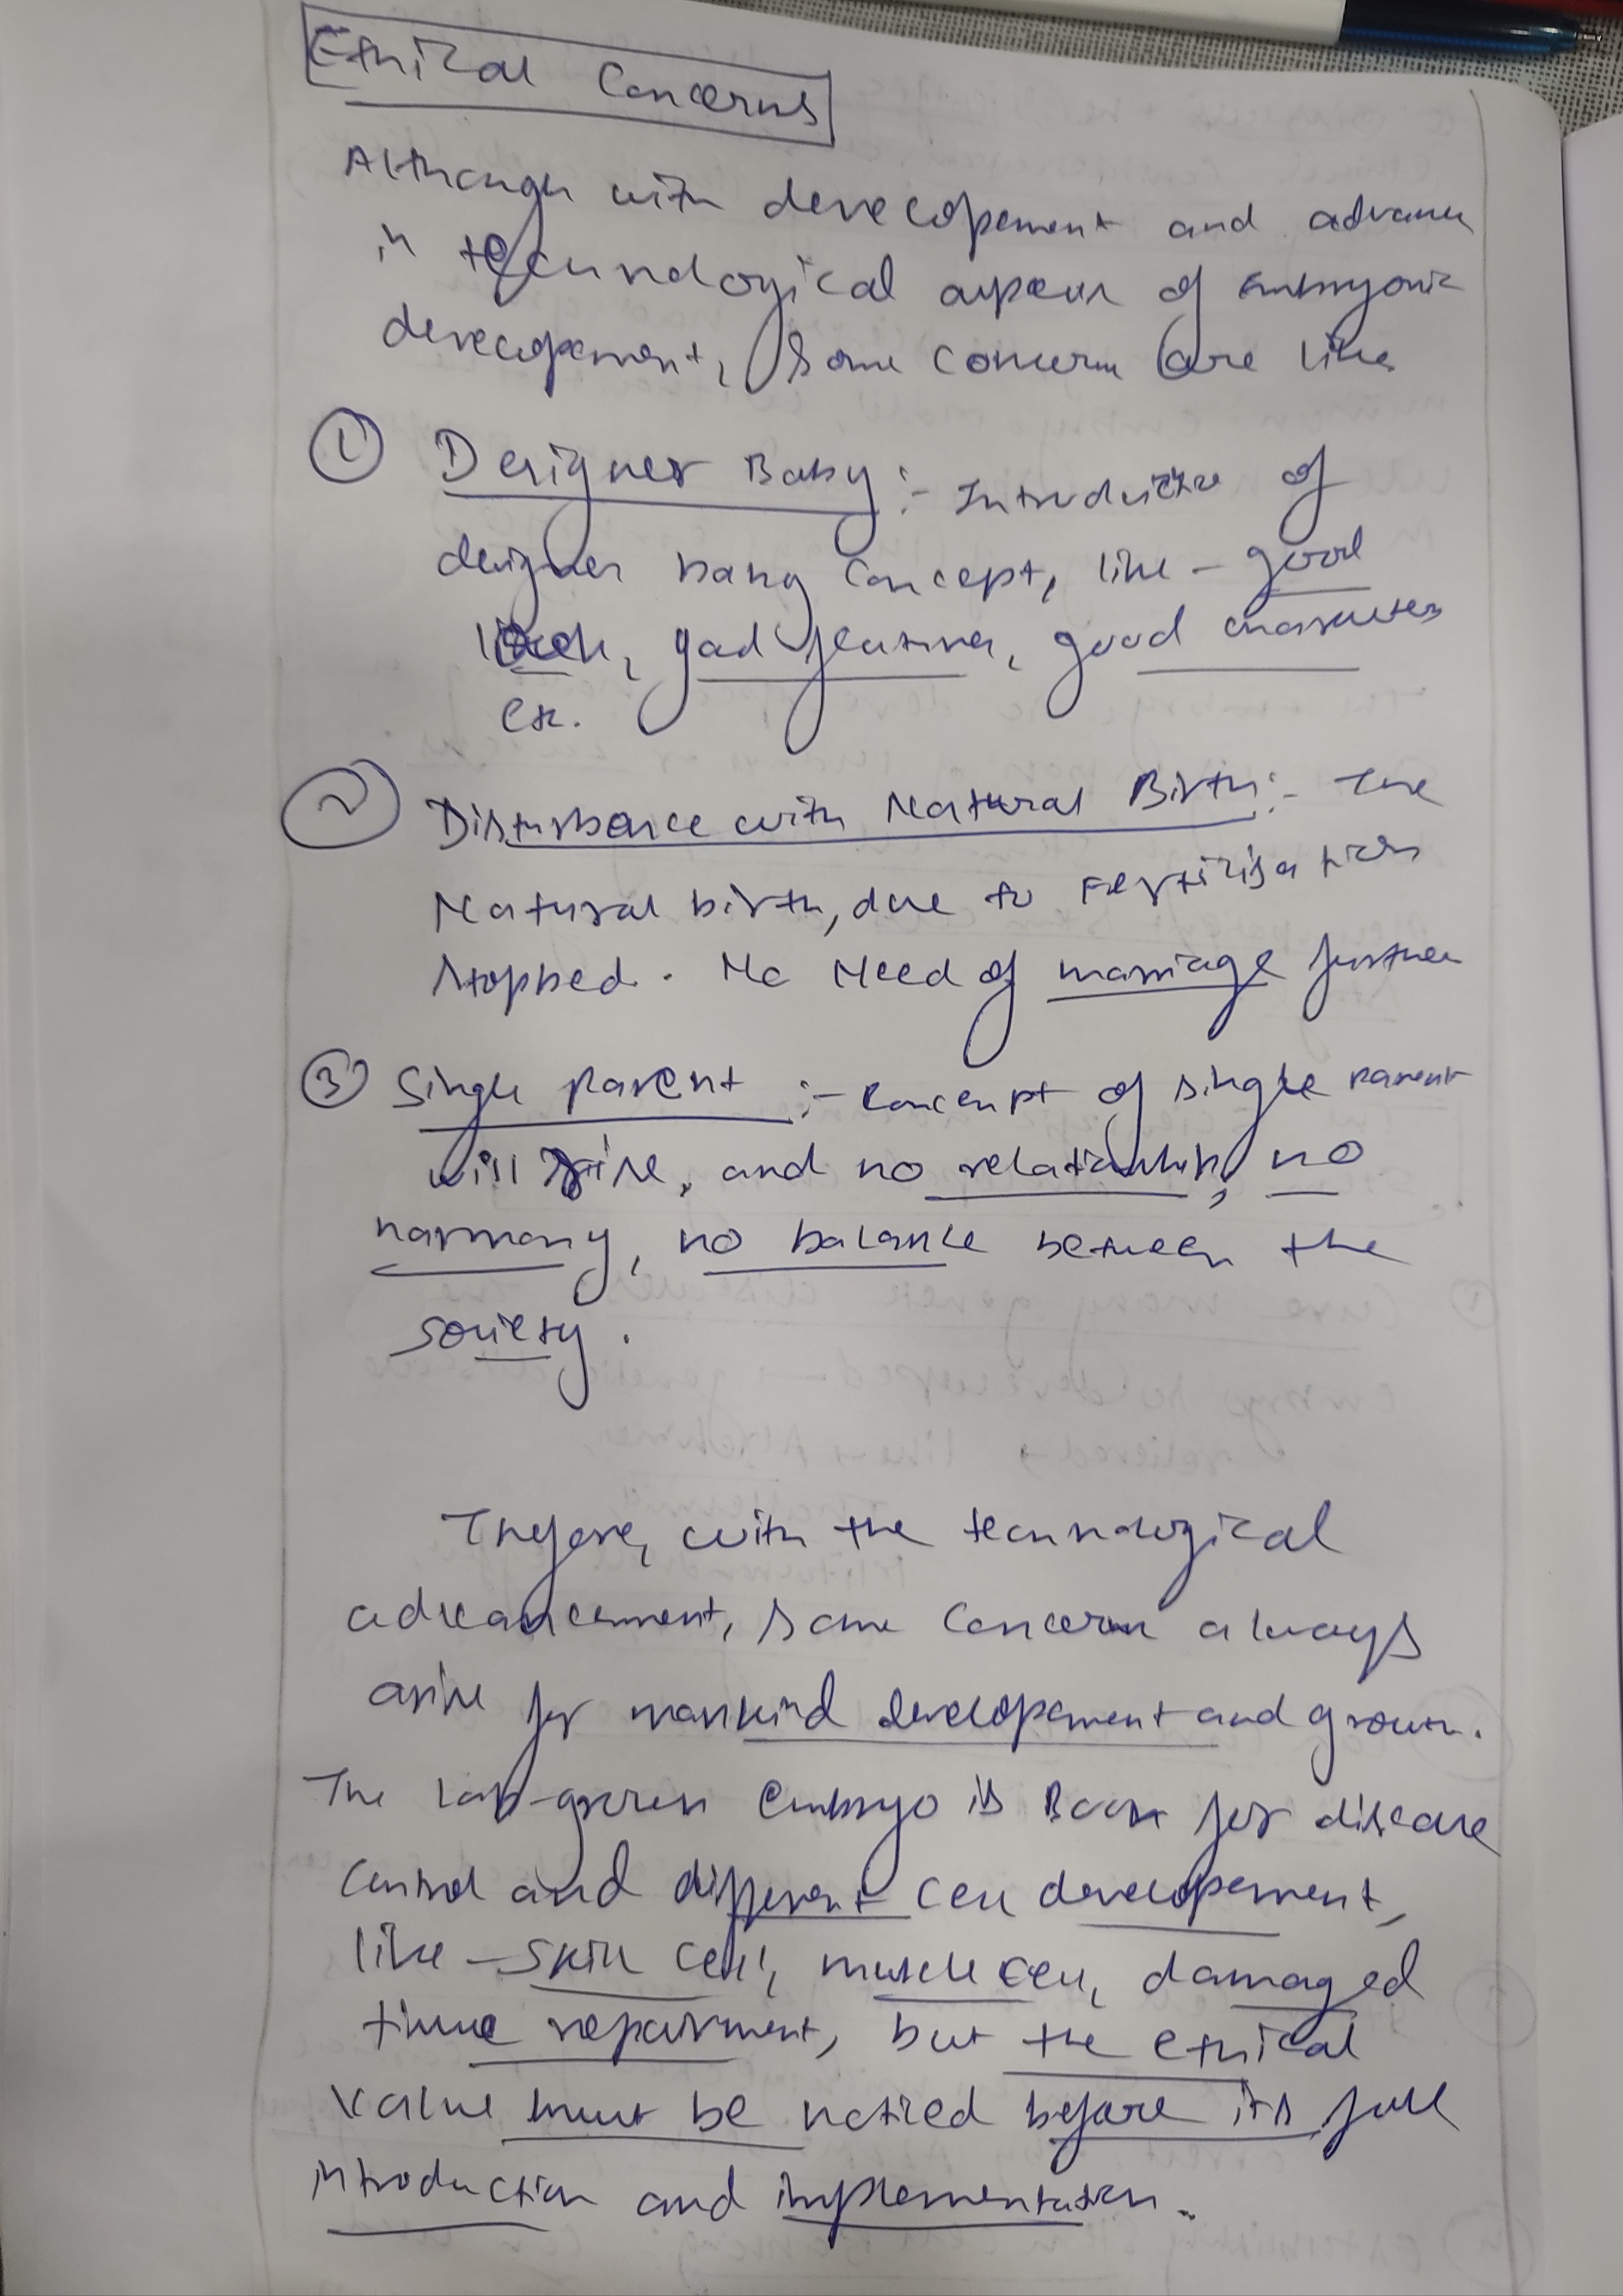 Ethical Concerns
Although with developement and advance
in technological aspect of embryonic
developement, some concern are like
① Designer Baby :- Introduction of
designer baby concept, like - good
look, good features, good characters
etc.
② Disturbance with Natural Birth :- The
Natural birth, due to Fertilisation
stopped. No Need of marriage further
③ Single Parent :- Concenpt of single parent
will rise, and no relationship, no
harmony, no balance between the
society.
Therfore, with the technological
advancement, some concern always
arise for mankind developement and grown.
The Lab-grown Embryo is Boon for disease
control and different cell developement,
like - skin cell, muscle cell, damaged
tissue repairment, but the ethical
value must be noticed before its full
introduction and implementation.